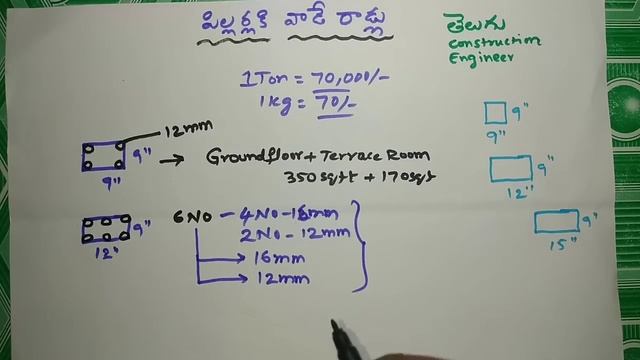 పిల్లర్లకి వాడే రాడ్లు
తెలుగు
construction
Engineer
1Ton = 70,000/-
1kg = 70/-
12mm
9"
9"
→ Groundfloor + Terrace Room
350sqft + 170sqft
6NO - 4NO-16mm
2NO-12mm
→ 16mm
→ 12mm
9"
12"
9"
9"
9"
12"
9"
15"